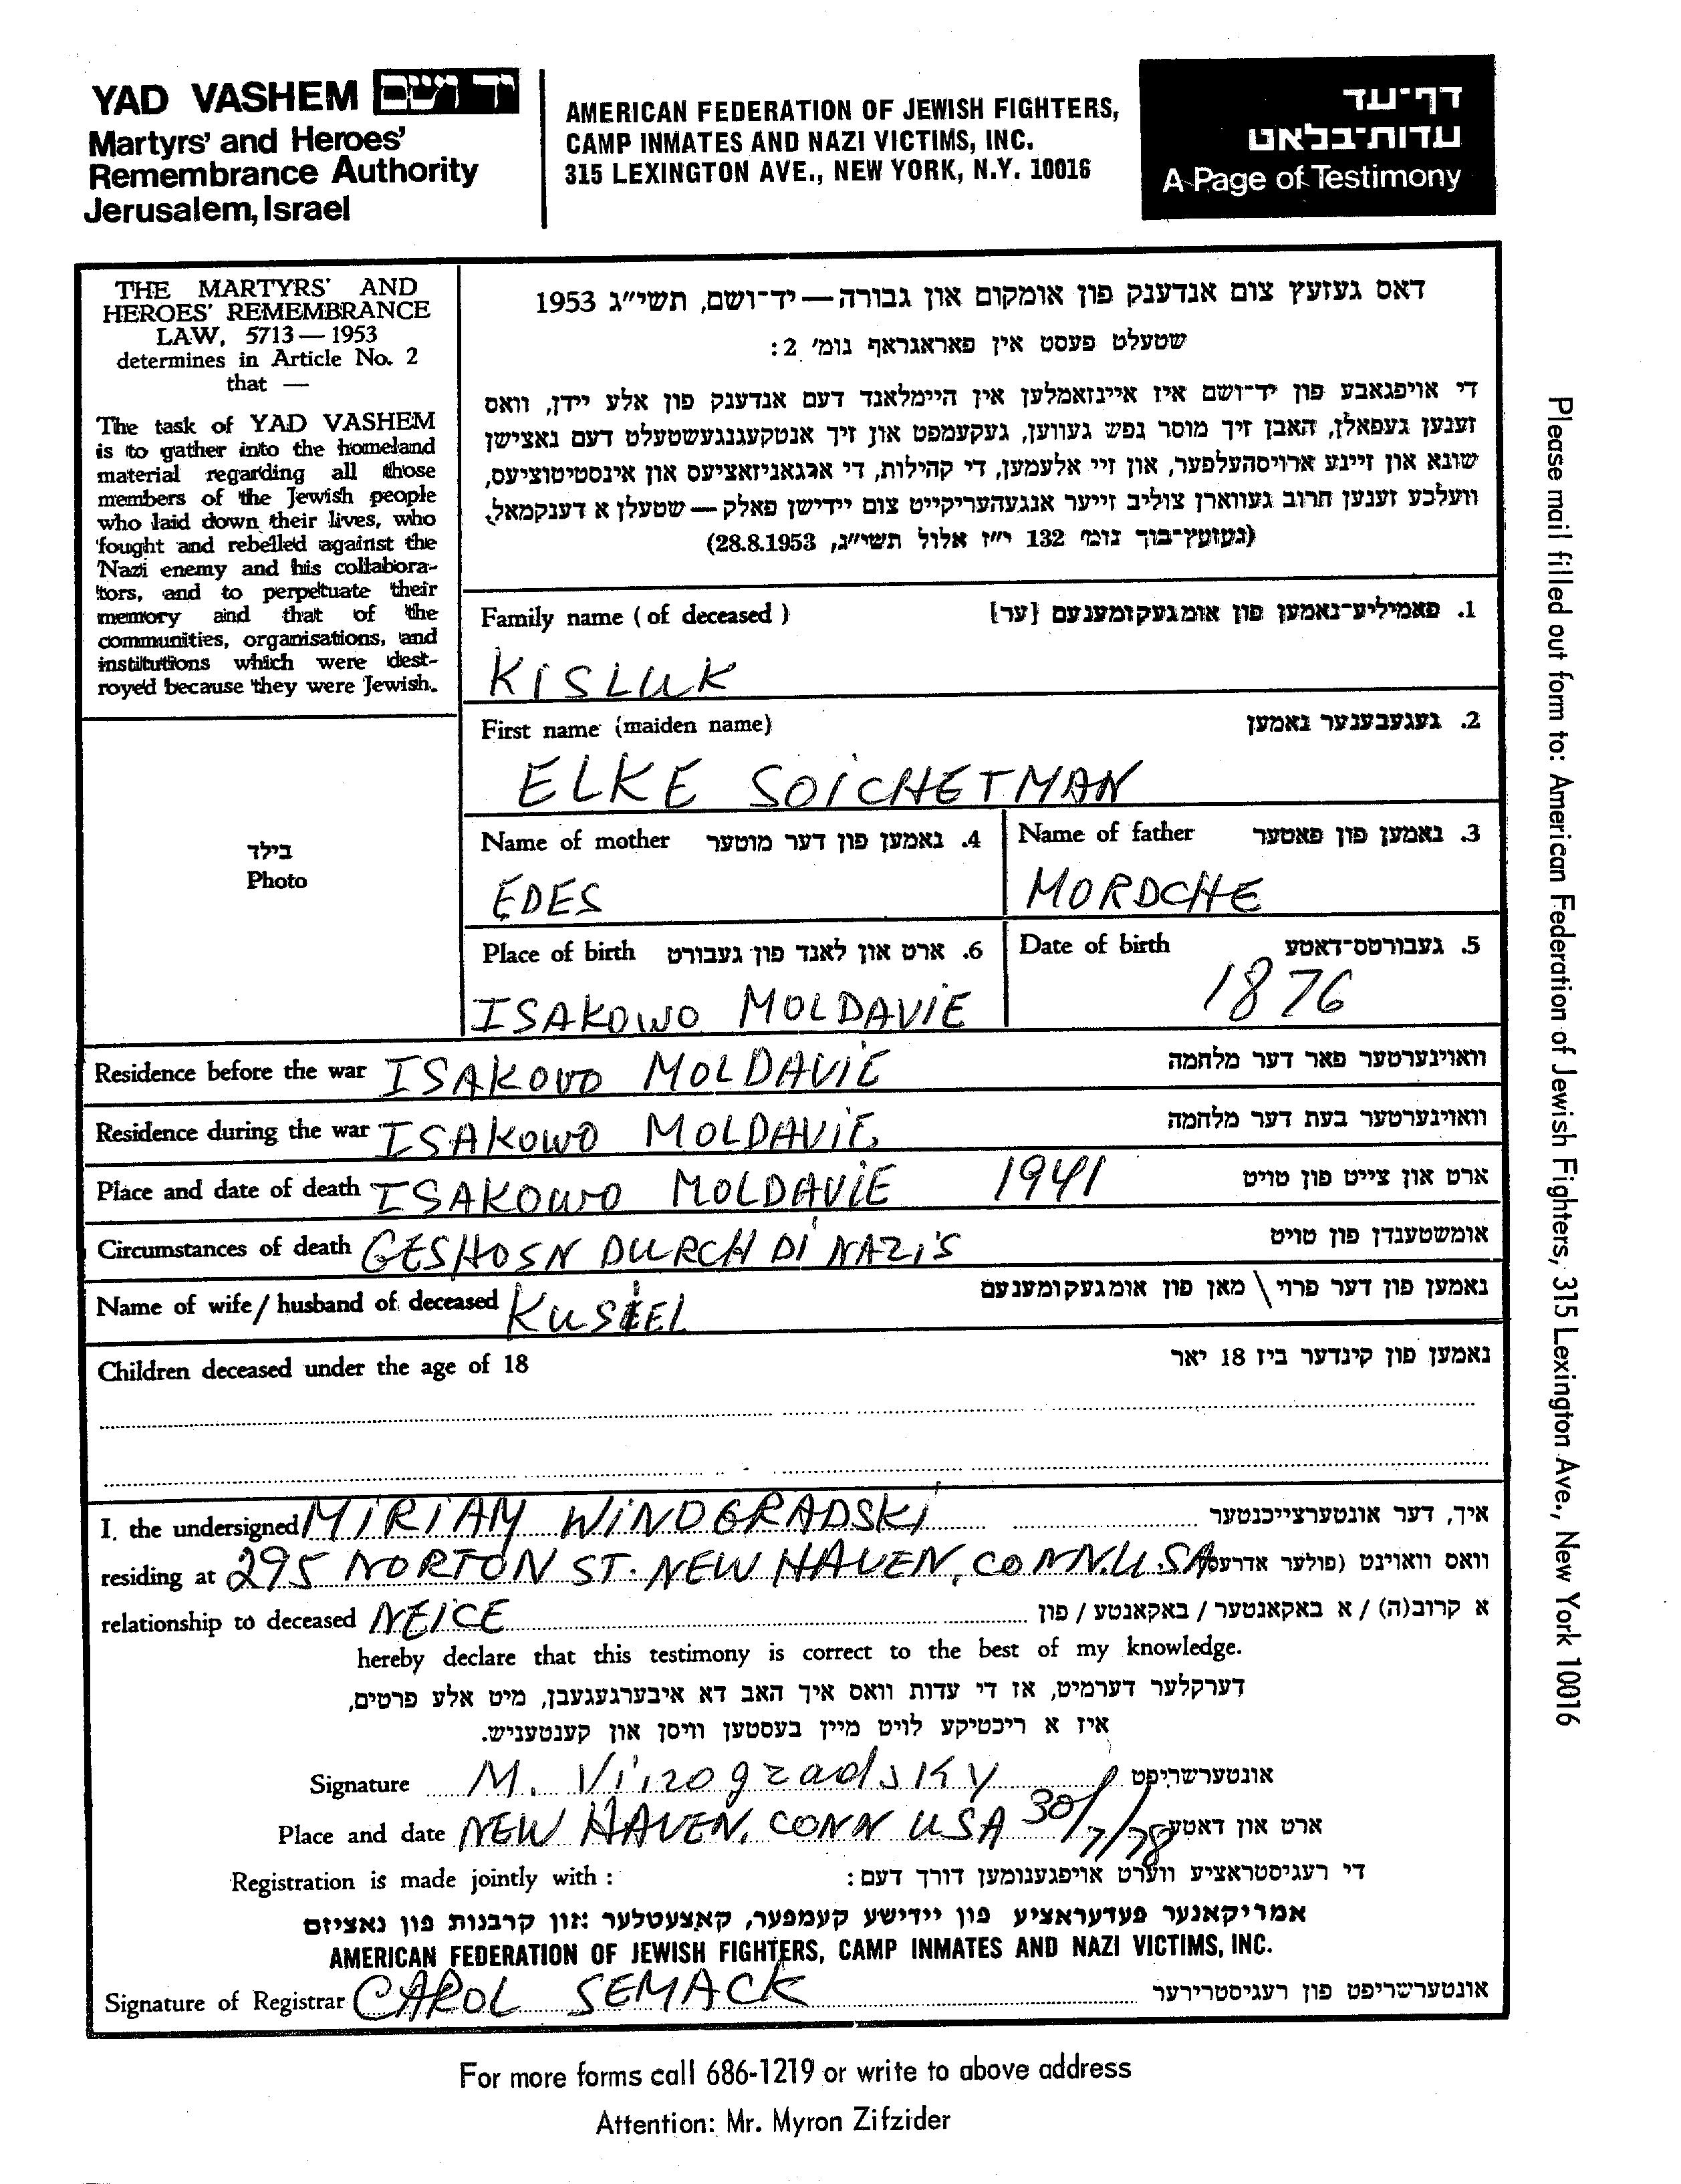 YAD VASHEM יד ושם
Martyrs' and Heroes'
Remembrance Authority
Jerusalem, Israel
AMERICAN FEDERATION OF JEWISH FIGHTERS,
CAMP INMATES AND NAZI VICTIMS, INC.
315 LEXINGTON AVE., NEW YORK, N.Y. 10016
דף-עד
עדות-בלאט
A Page of Testimony
THE MARTYRS' AND
HEROES' REMEMBRANCE
LAW, 5713 — 1953
determines in Article No. 2
that —
The task of YAD VASHEM
is to gather into the homeland
material regarding all those
members of the Jewish people
who laid down their lives, who
fought and rebelled against the
Nazi enemy and his collabora-
tors, and to perpetuate their
memory and that of the
communities, organisations, and
institutions which were dest-
royed because they were Jewish.
דאס געזעץ צום אנדענק פון אומקום און גבורה — יד-ושם, תשי״ג 1953
שטעלט פעסט אין פאראגראף נומ׳ 2:
די אויפגאבע פון יד-ושם איז איינזאמלען אין היימלאנד דעם אנדענק פון אלע יידן, וואס
זענען געפאלן, האבן זיך מוסר נפש געווען, געקעמפט און זיך אנטקעגנגעשטעלט דעם נאצישן
שונא און זיינע ארויסהעלפער, און זיי אלעמען, די קהילות, די ארגאניזאציעס און אינסטיטוציעס,
וועלכע זענען חרוב געווארן צוליב זייער אנגעהעריקייט צום יידישן פאלק — שטעלן א דענקמאל.
(געזעץ-בוך נומ׳ 132 י״ז אלול תשי״ג, 28.8.1953)
Family name (of deceased) 1. פאמיליע-נאמען פון אומגעקומענעם [ער]
KISLUK
First name (maiden name) 2. געגעבענער נאמען
ELKE SOICHETMAN
Name of mother 4. נאמען פון דער מוטער Name of father 3. נאמען פון פאטער
EDES MORDCHE
Place of birth 6. ארט און לאנד פון געבורט Date of birth 5. געבורטס-דאטע
ISAKOWO MOLDAVIE 1876
בילד
Photo
Residence before the war ISAKOVO MOLDAVIE וואוינערטער פאר דער מלחמה
Residence during the war ISAKOWO MOLDAVIE וואוינערטער בעת דער מלחמה
Place and date of death ISAKOWO MOLDAVIE 1941 ארט און צייט פון טויט
Circumstances of death GESHOSN DURCH DI NAZI'S אומשטענדן פון טויט
Name of wife / husband of deceased KUSIEL נאמען פון דער פרוי \ מאן פון אומגעקומענעם
Children deceased under the age of 18 נאמען פון קינדער ביז 18 יאר
I. the undersigned MIRIAM WINOGRADSKI איך, דער אונטערצייכנטער
residing at 295 NORTON ST. NEW HAVEN, CONN. USA וואס וואוינט (פולער אדרעס)
relationship to deceased NEICE א קרוב(ה) / א באקאנטער / באקאנטע / פון
hereby declare that this testimony is correct to the best of my knowledge.
דערקלער דערמיט, אז די עדות וואס איך האב דא איבערגעגעבן, מיט אלע פרטים,
איז א ריכטיקע לויט מיין בעסטען וויסן און קענטעניש.
Signature M. Vinogradsky אונטערשריפט
Place and date NEW HAVEN, CONN USA 30/7/78 ארט און דאטע
Registration is made jointly with : די רעגיסטראציע ווערט אויפגענומען דורך דעם :
אמריקאנער פעדעראציע פון יידישע קעמפער, קאצעטלער און קרבנות פון נאציזם
AMERICAN FEDERATION OF JEWISH FIGHTERS, CAMP INMATES AND NAZI VICTIMS, INC.
Signature of Registrar CAROL SEMACK אונטערשריפט פון רעגיסטרירער
For more forms call 686-1219 or write to above address
Attention: Mr. Myron Zifzider
Please mail filled out form to: American Federation of Jewish Fighters, 315 Lexington Ave., New York 10016